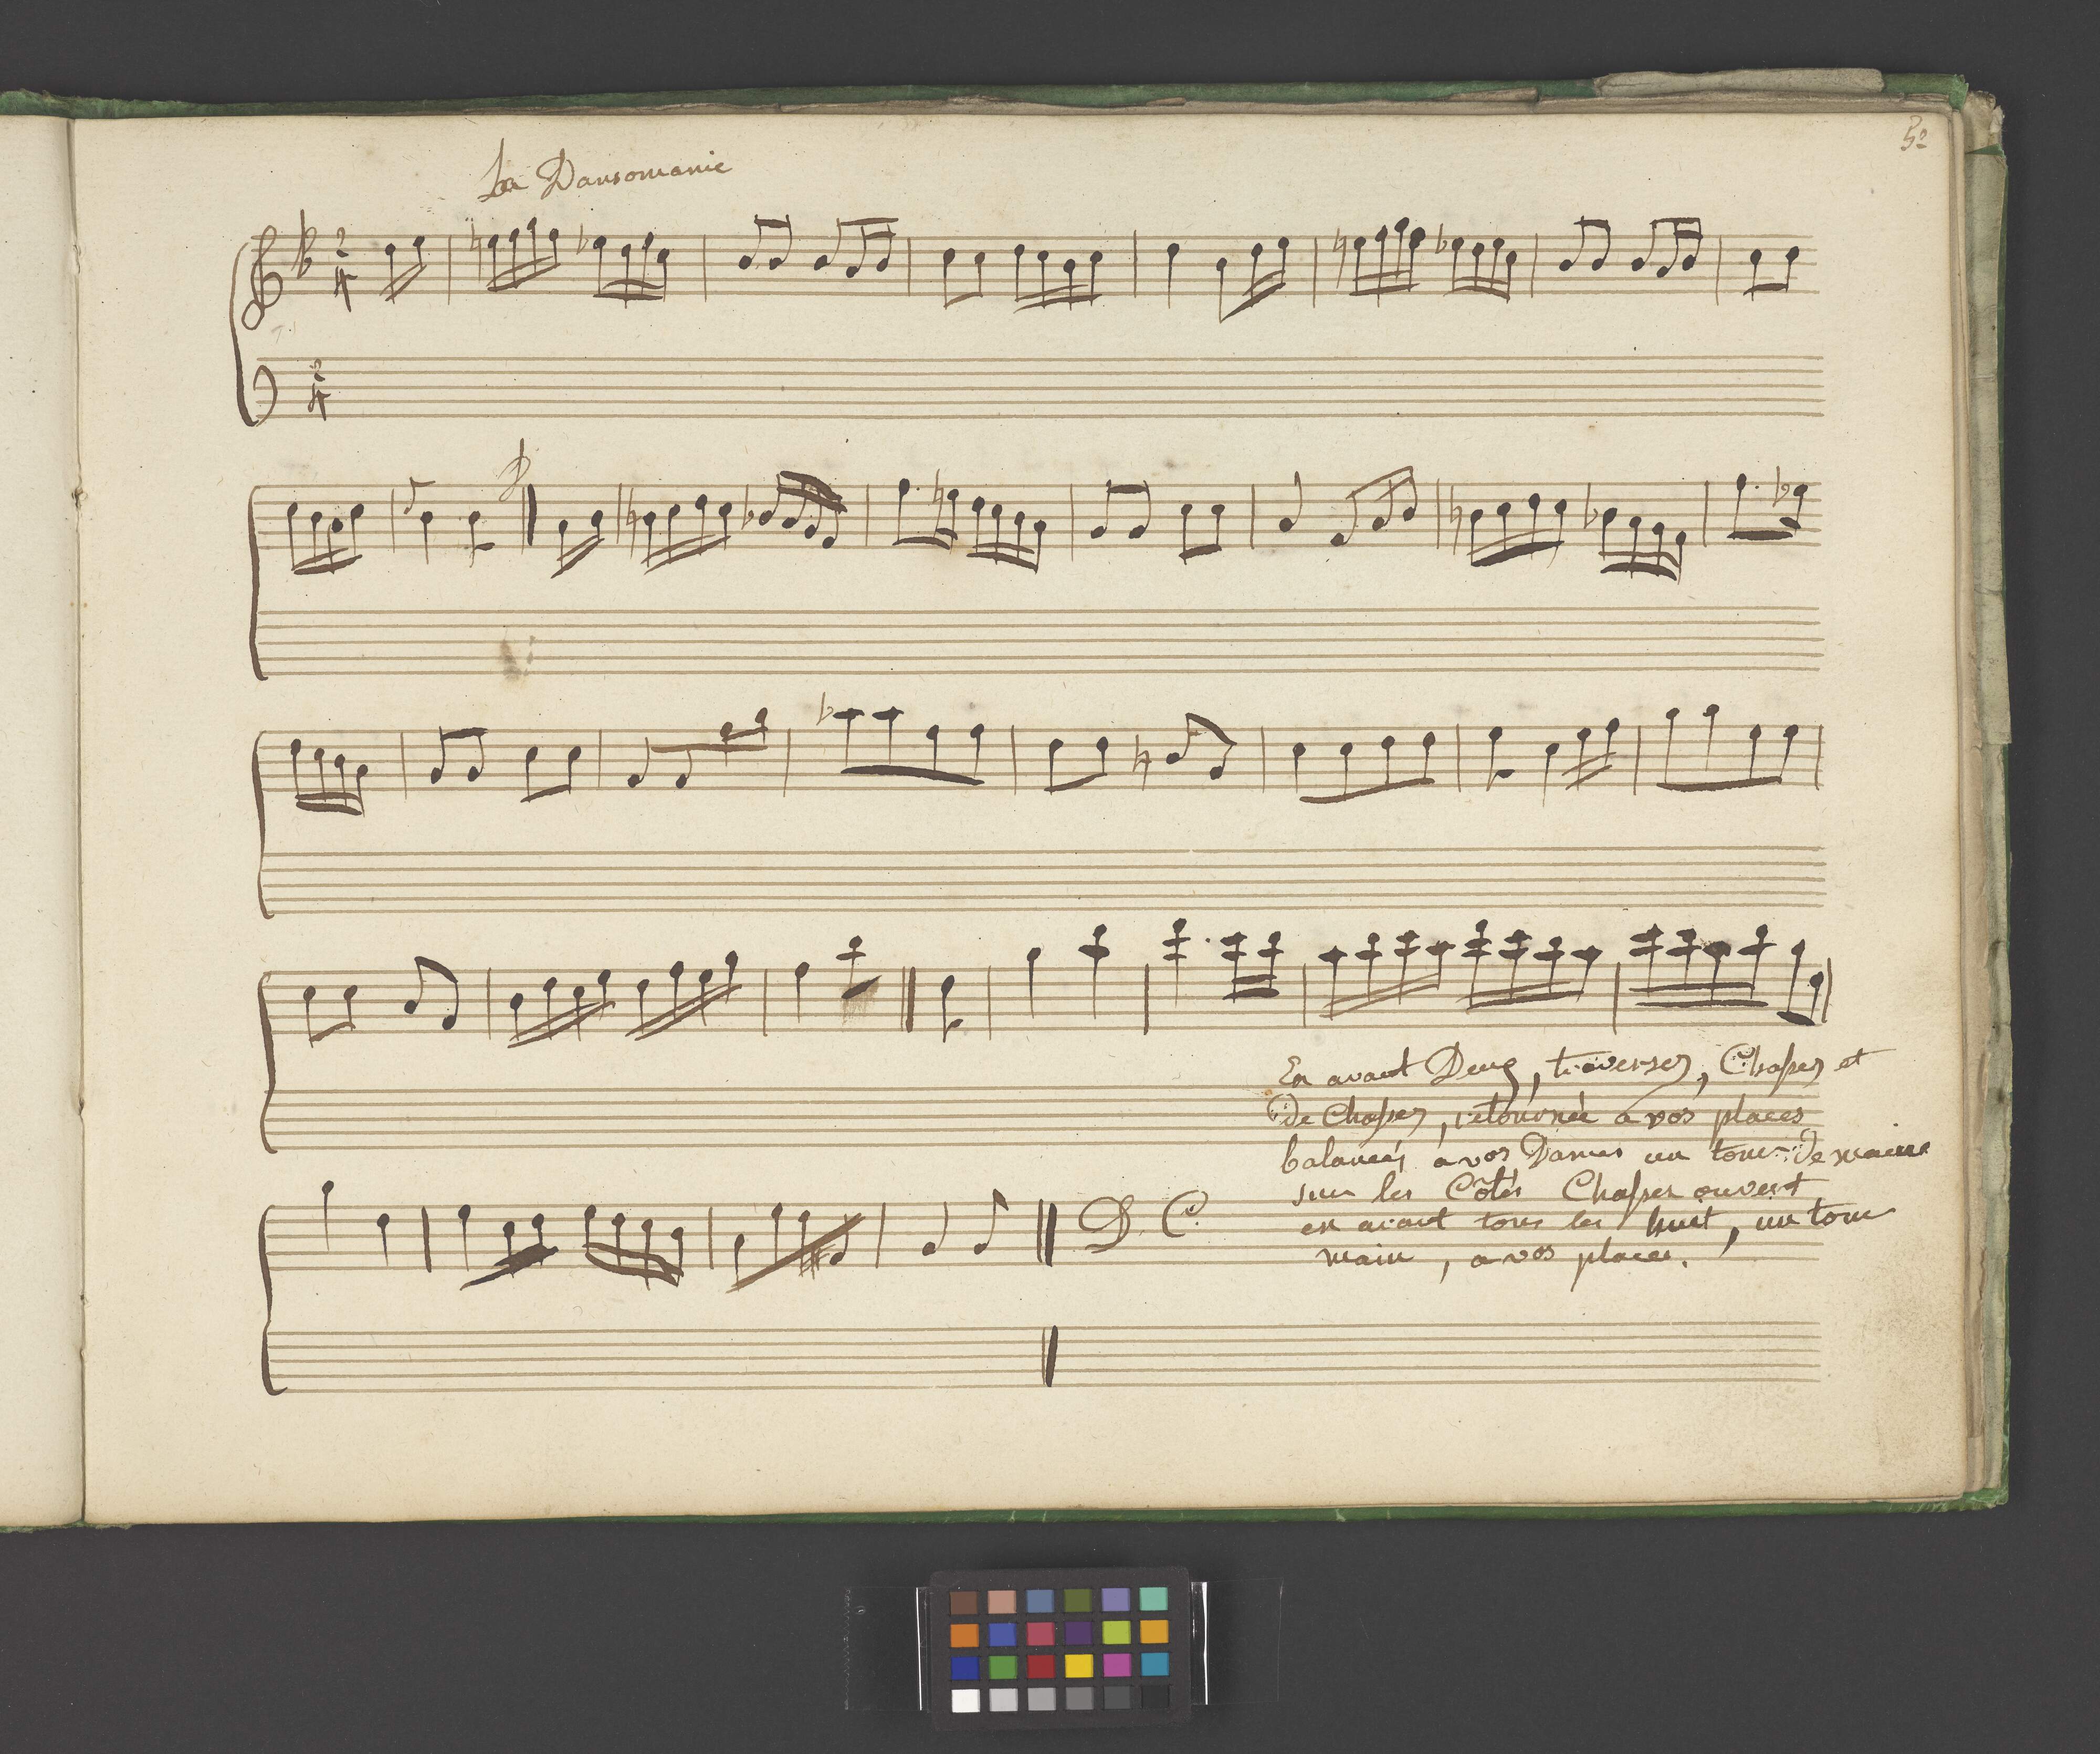 52
La Dansomanie
2
4
2
4
En avant Deux, traversez, Chassez et
De Chassez, retournée a vos places
balancés a vos Dames un tour De mains
sur les Côtés Chasser ouvert
en avant tous les huit, un tour
main, a vos places.
D. C.